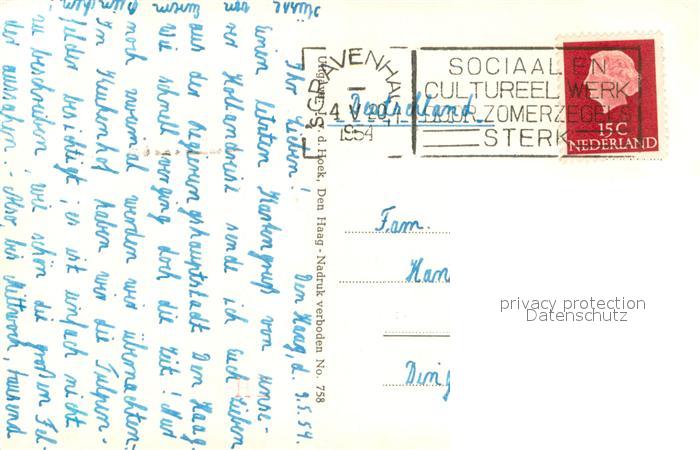 Den Haag, d. 9.5.54.
Ihr Lieben!
Einen letzten Kartengruß von unse-
rer Hollandreise sende ich Euch Lieben
aus der Regierungshauptstadt Den Haag.
Wie schnell verging doch die Zeit! Nur
noch zweimal werden wir übernachten.
In Keukenhof haben wir die Tulpen-
felder besichtigt; es ist einfach nicht
zu beschreiben, wie schön die großen Fel-
der aussahen. - Also, bis Mittwoch, tausend
Grüße von
Eurem
Uitgave: v. d. Hoek, Den Haag - Nadruk verboden No. 758
'S-GRAVENHAGE
1954
SOCIAAL EN
CULTUREEL WERK
DOOR ZOMERZEGELS
STERK
15C
NEDERLAND
Deutschland
Fam.
Han
Ding
privacy protection
Datenschutz